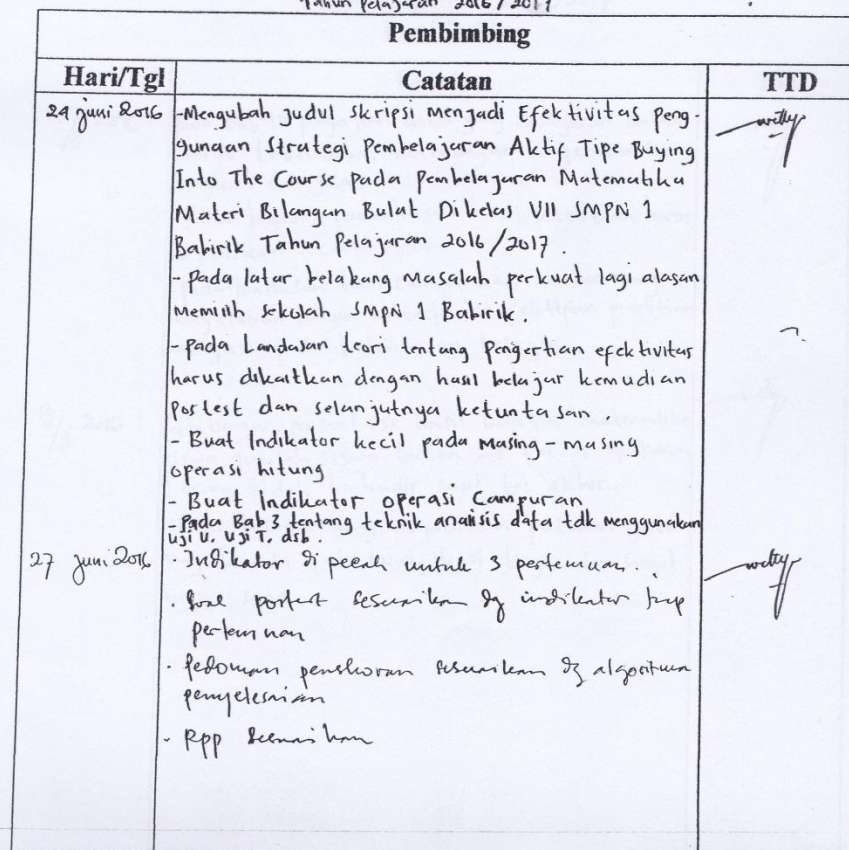 Tahun Pelajaran 2016/2017
Pembimbing
Hari/Tgl Catatan TTD
24 juni 2016 -Mengubah judul skripsi menjadi Efektivitas peng-
gunaan Strategi Pembelajaran Aktif Tipe Buying
Into The Course pada Pembelajaran Matematika
Materi Bilangan Bulat Dikelas VII SMPN 1
Babirik Tahun Pelajaran 2016/2017.
- pada latar belakang masalah perkuat lagi alasan
memilih sekolah SMPN 1 Babirik.
- pada Landasan teori tentang pengertian efektivitas
harus dikaitkan dengan hasil belajar kemudian
postest dan selanjutnya ketuntasan.
- Buat Indikator kecil pada masing-masing
operasi hitung
- Buat Indikator operasi Campuran
- Pada Bab 3 tentang teknik analisis data tdk menggunakan
uji U, uji T, dsb.
27 juni 2016 - Indikator di pecah untuk 3 pertemuan.
- Soal postest sesuaikan dg indikator tiap
pertemuan
- Pedoman penskoran sesuaikan dg algoritma
penyelesaian
- Rpp sesuaikan